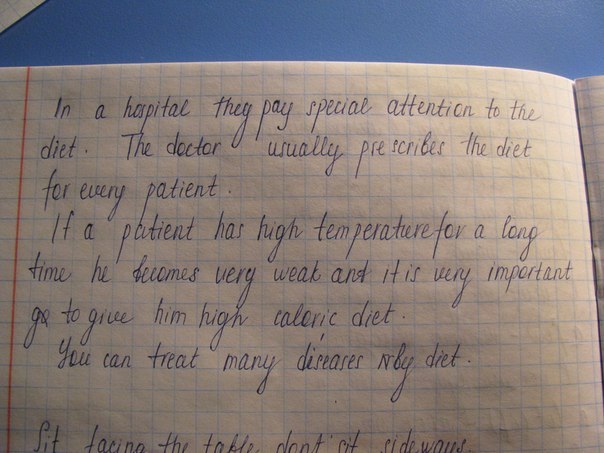 In a hospital they pay special attention to the
diet. The doctor usually prescribes the diet
for every patient.
If a patient has high temperature for a long
time he becomes very weak and it is very important
to give him high caloric diet.
You can treat many diseases by diet.
Sit facing the table, dont' sit sideways.